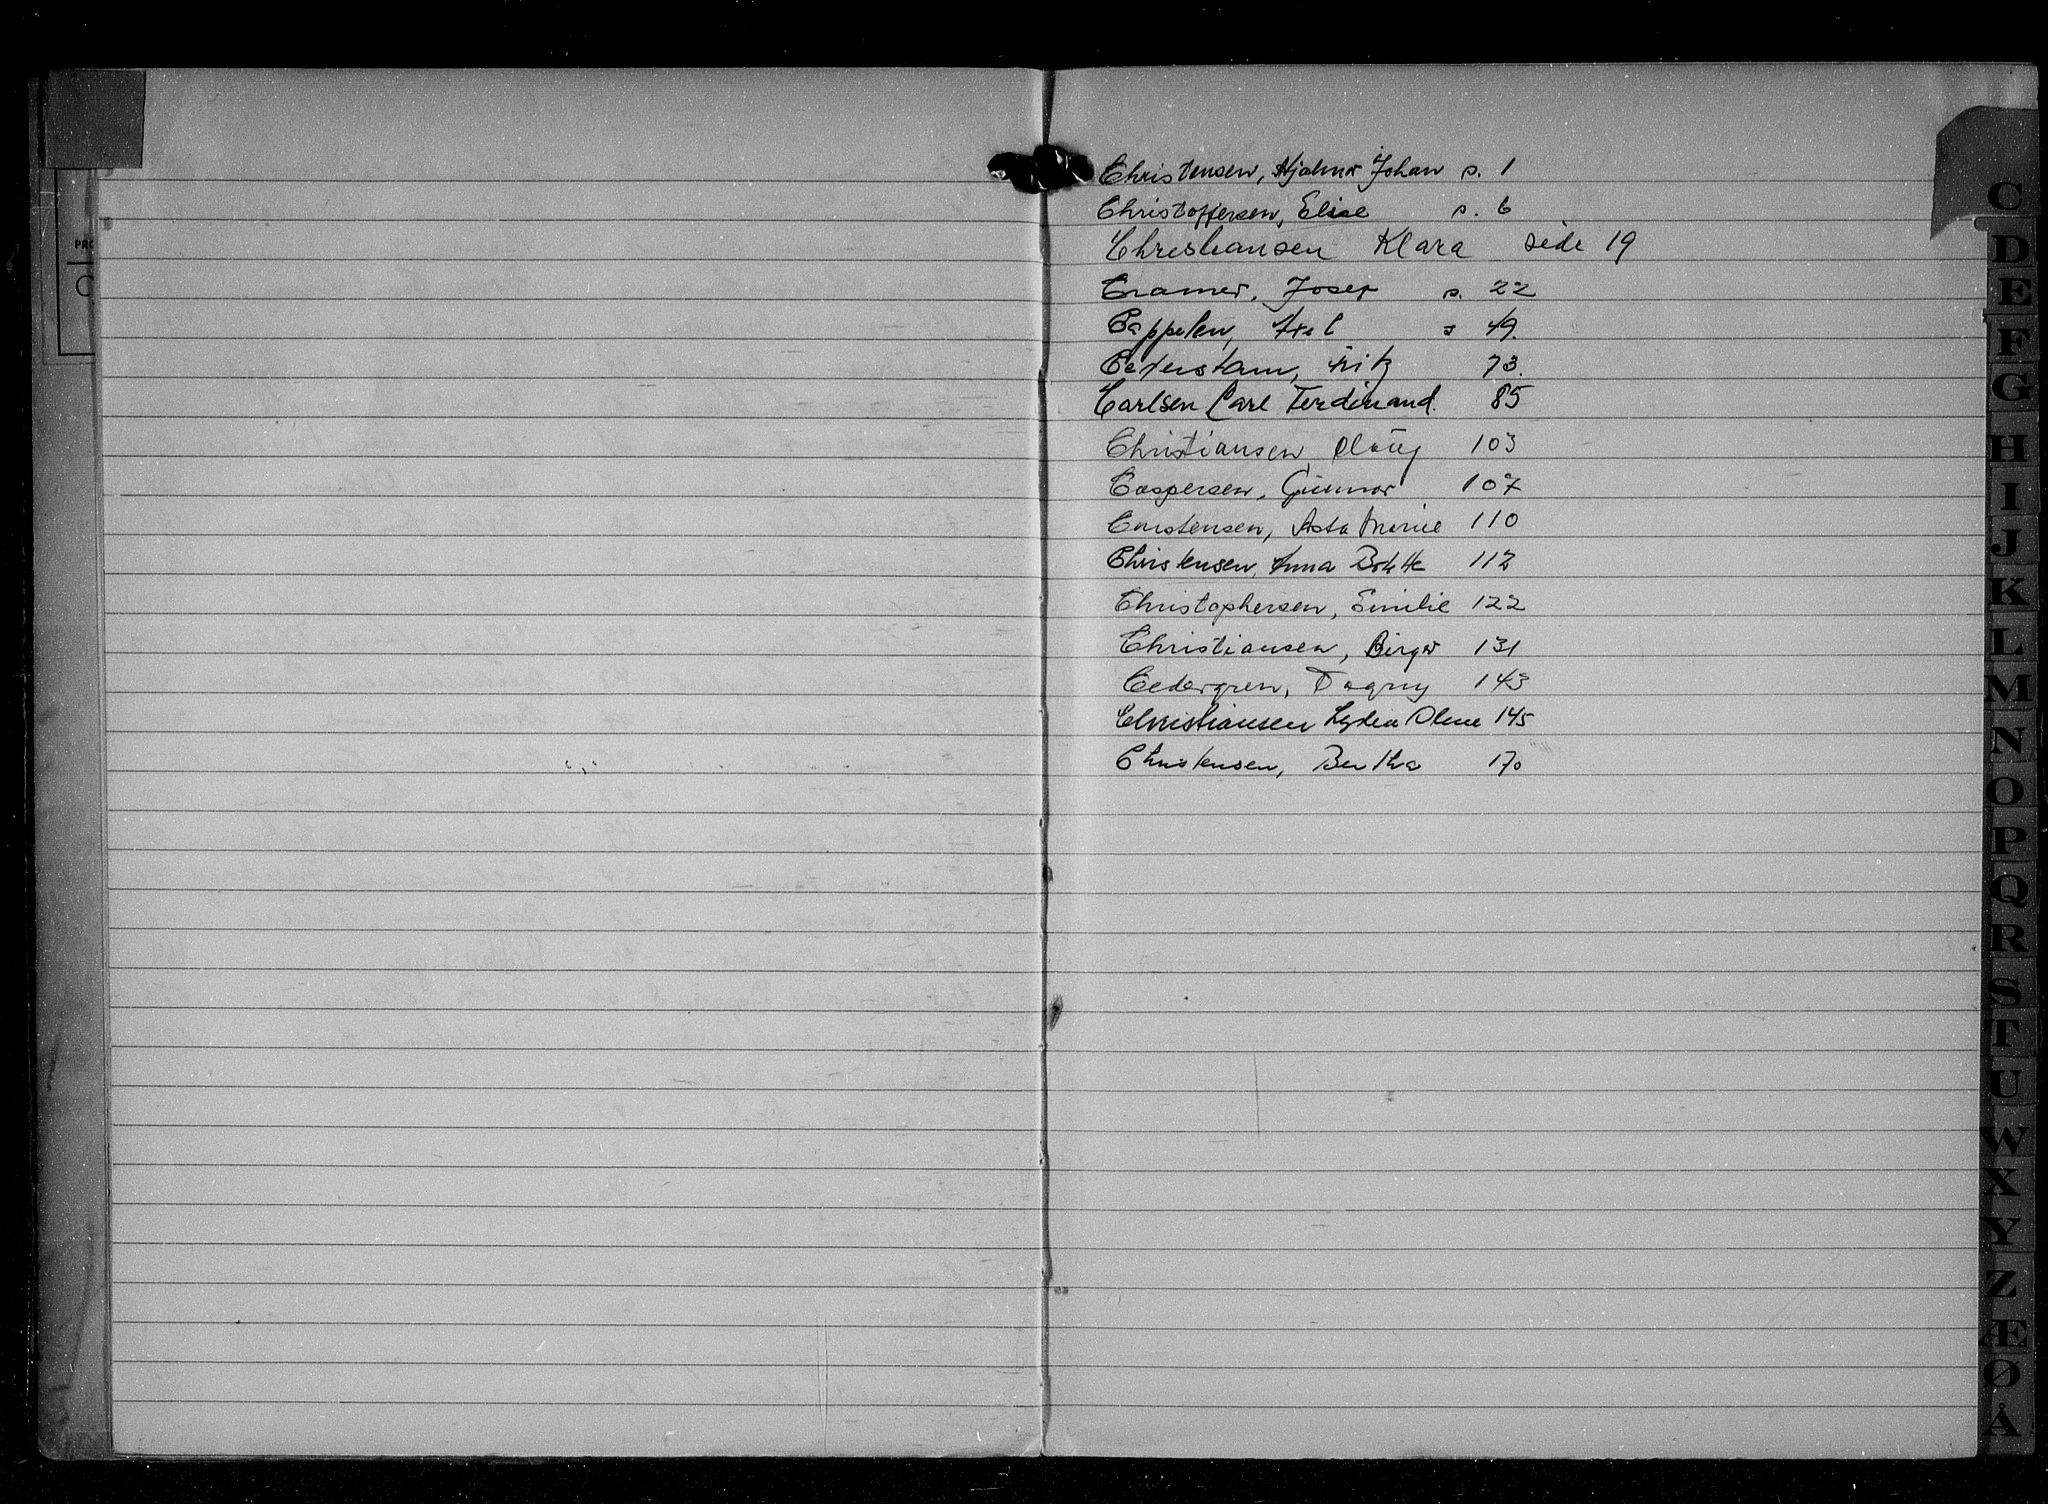 Christensen, Hjalmar Johan s. 1
Christoffersen, Elise s. 6
Christiansen Klara side 19
Cramer, Josef s. 22
Cappelen, Axel s 49.
Cederstam, Fritz 73.
Carlsen Carl Ferdinand. 85
Christiansen, Olaug 103
Caspersen, Gunnar 107
Carstensen, Asta Marie 110
Christensen, Anna Bolette 112
Christophersen, Emilie 122
Christiansen, Birger 131
Cedergren, Dagny 143
Christiansen Lydia Oline 145
Christensen, Bertha 170
C
D
E
F
G
H
I
J
K
L
M
N
O
P
Q
R
S
T
U
W
X
Y
Z
Æ
Ø
Å